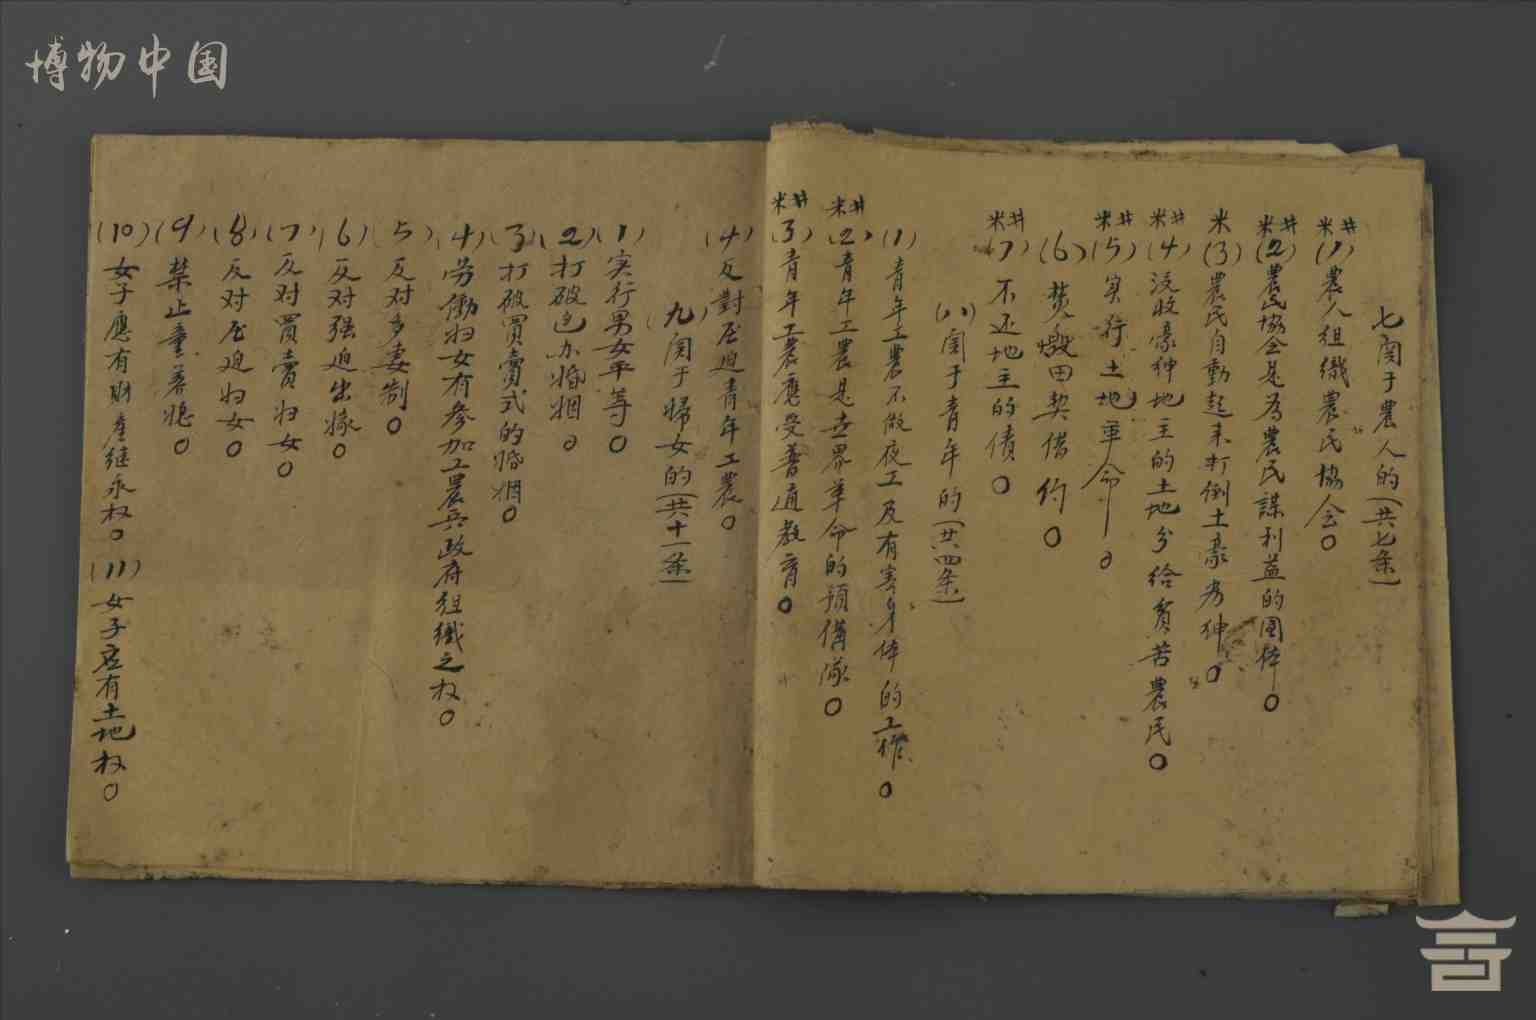 博物中国
七関于農人的(共七条)
米井(1)農人組織農民協会。
米井(2)農民協会是為農民謀利益的團体。
米(3)農民自動起来打倒土豪劣紳。
米井(4)没收豪紳地主的土地分給貧苦農民。
米井(5)实行土地革命。
(6)焚燬田契借约。
米井(7)不还地主的債。
(八)関于青年的(共四条)
(1)青年工農不做夜工及有害身体的工作。
米井(2)青年工農是世界革命的預備隊。
米井(3)青年工農應受普通教育。
(4)反對压迫青年工農。
(九)関于婦女的(共十一条)
(1)实行男女平等。
(2)打破包办婚姻。
(3)打破買賣式的婚姻。
(4)劳働妇女有参加工農兵政府組織之权。
(5)反对多妻制。
(6)反对强迫出嫁。
(7)反对買賣妇女。
(8)反对压迫妇女。
(9)禁止童養媳。
(10)女子應有財產继承权。(11)女子应有土地权。